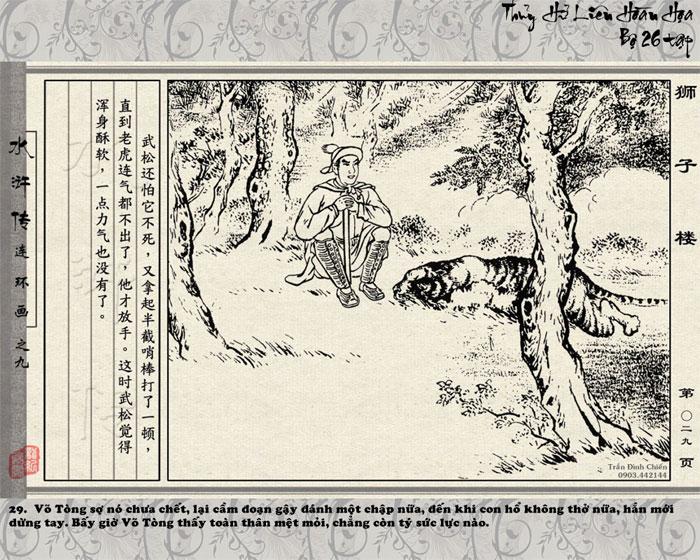 Thủy Hử Liên Hoàn Họa
Bộ 26 tập
水浒传 连环画 之九
狮子楼
第〇二九页
武松还怕它不死，又拿起半截哨棒打了一顿，
直到老虎连气都不出了，他才放手。这时武松觉得
浑身酥软，一点力气也没有了。
Trần Đình Chiến
0903.442144
29. Võ Tòng sợ nó chưa chết, lại cầm đoạn gậy đánh một chập nữa, đến khi con hổ không thở nữa, hắn mới
dừng tay. Bấy giờ Võ Tòng thấy toàn thân mệt mỏi, chẳng còn tý sức lực nào.